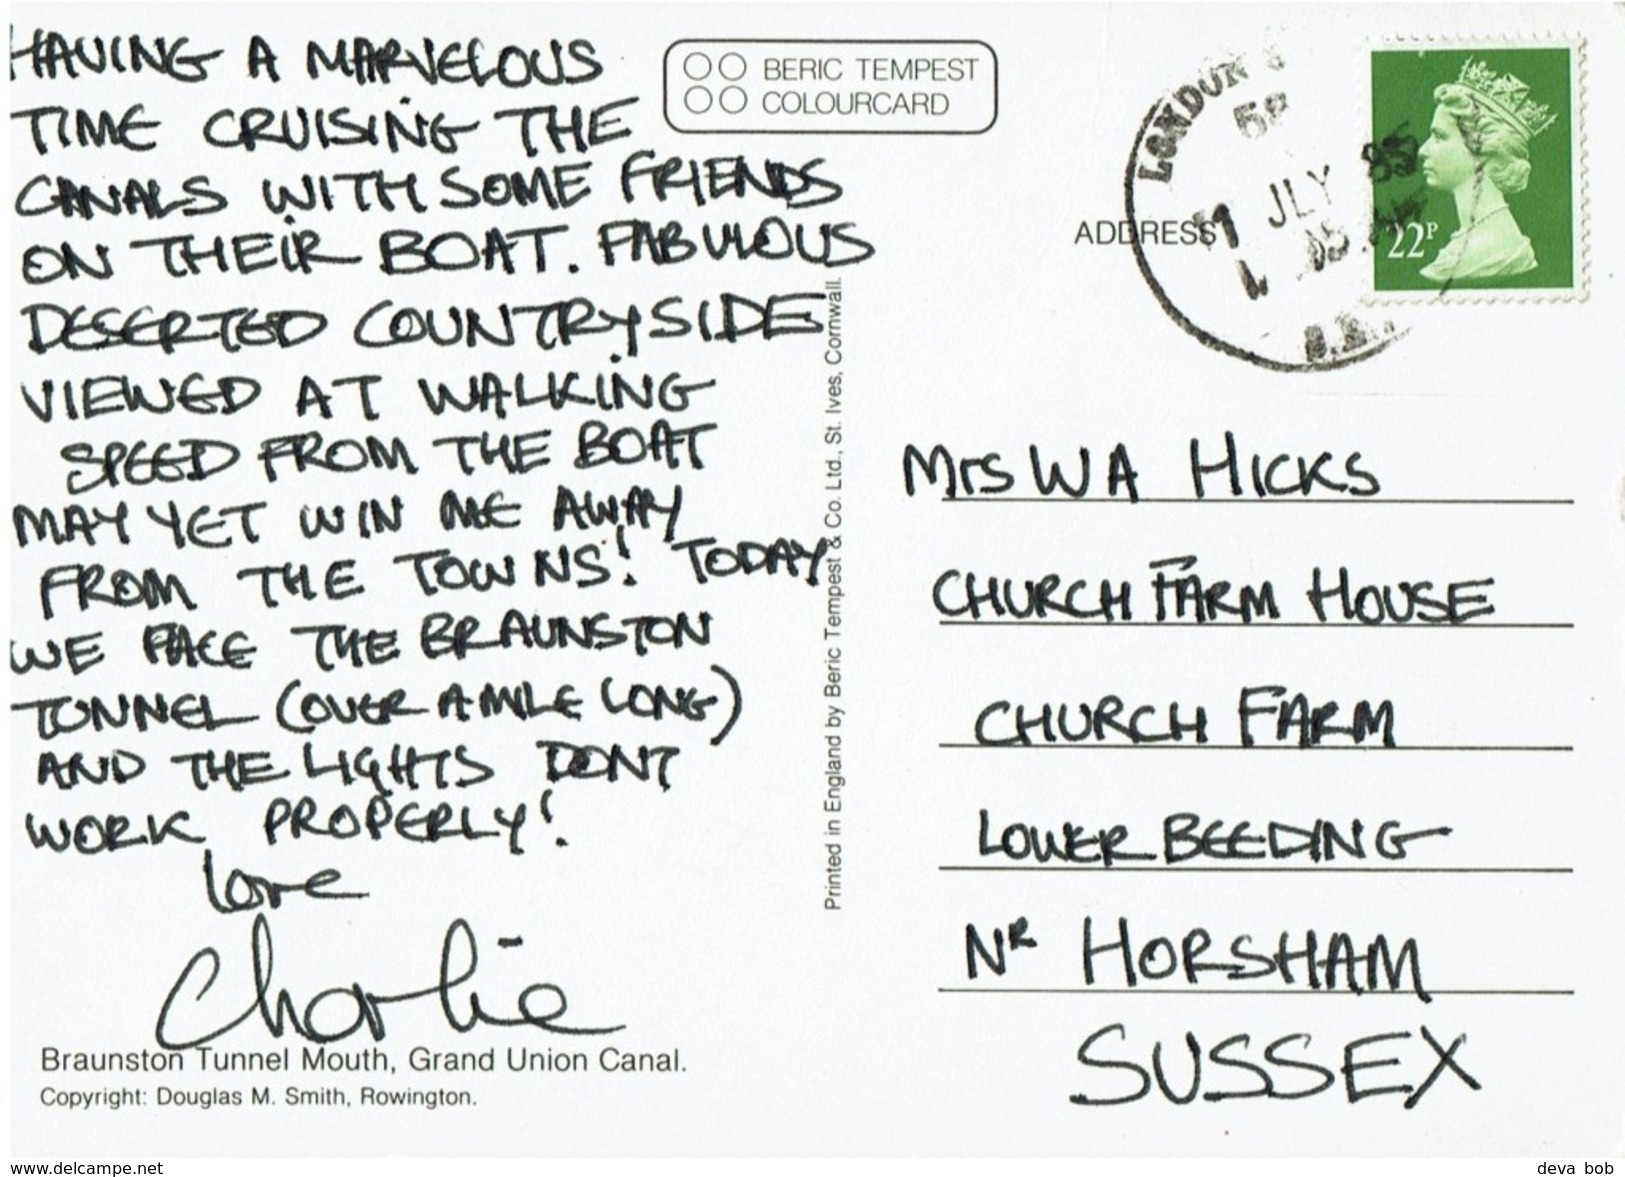 HAVING A MARVELOUS
TIME CRUISING THE
CANALS WITH SOME FRIENDS
ON THEIR BOAT. FABULOUS
DESERTED COUNTRYSIDE
VIEWED AT WALKING
SPEED FROM THE BOAT
MAY YET WIN ME AWAY
FROM THE TOWNS! TODAY
WE FACE THE BRAUNSTON
TUNNEL (OVER A MILE LONG)
AND THE LIGHTS DONT
WORK PROPERLY!
love
Charlie
Braunston Tunnel Mouth, Grand Union Canal.
Copyright: Douglas M. Smith, Rowington.
BERIC TEMPEST
COLOURCARD
Printed in England by Beric Tempest & Co. Ltd., St. Ives, Cornwall.
ADDRESS
LONDON
JLY 85
22P
Mrs W A HICKS
CHURCH FARM HOUSE
CHURCH FARM
LOWER BEEDING
NR HORSHAM
SUSSEX
www.delcampe.net
deva bob